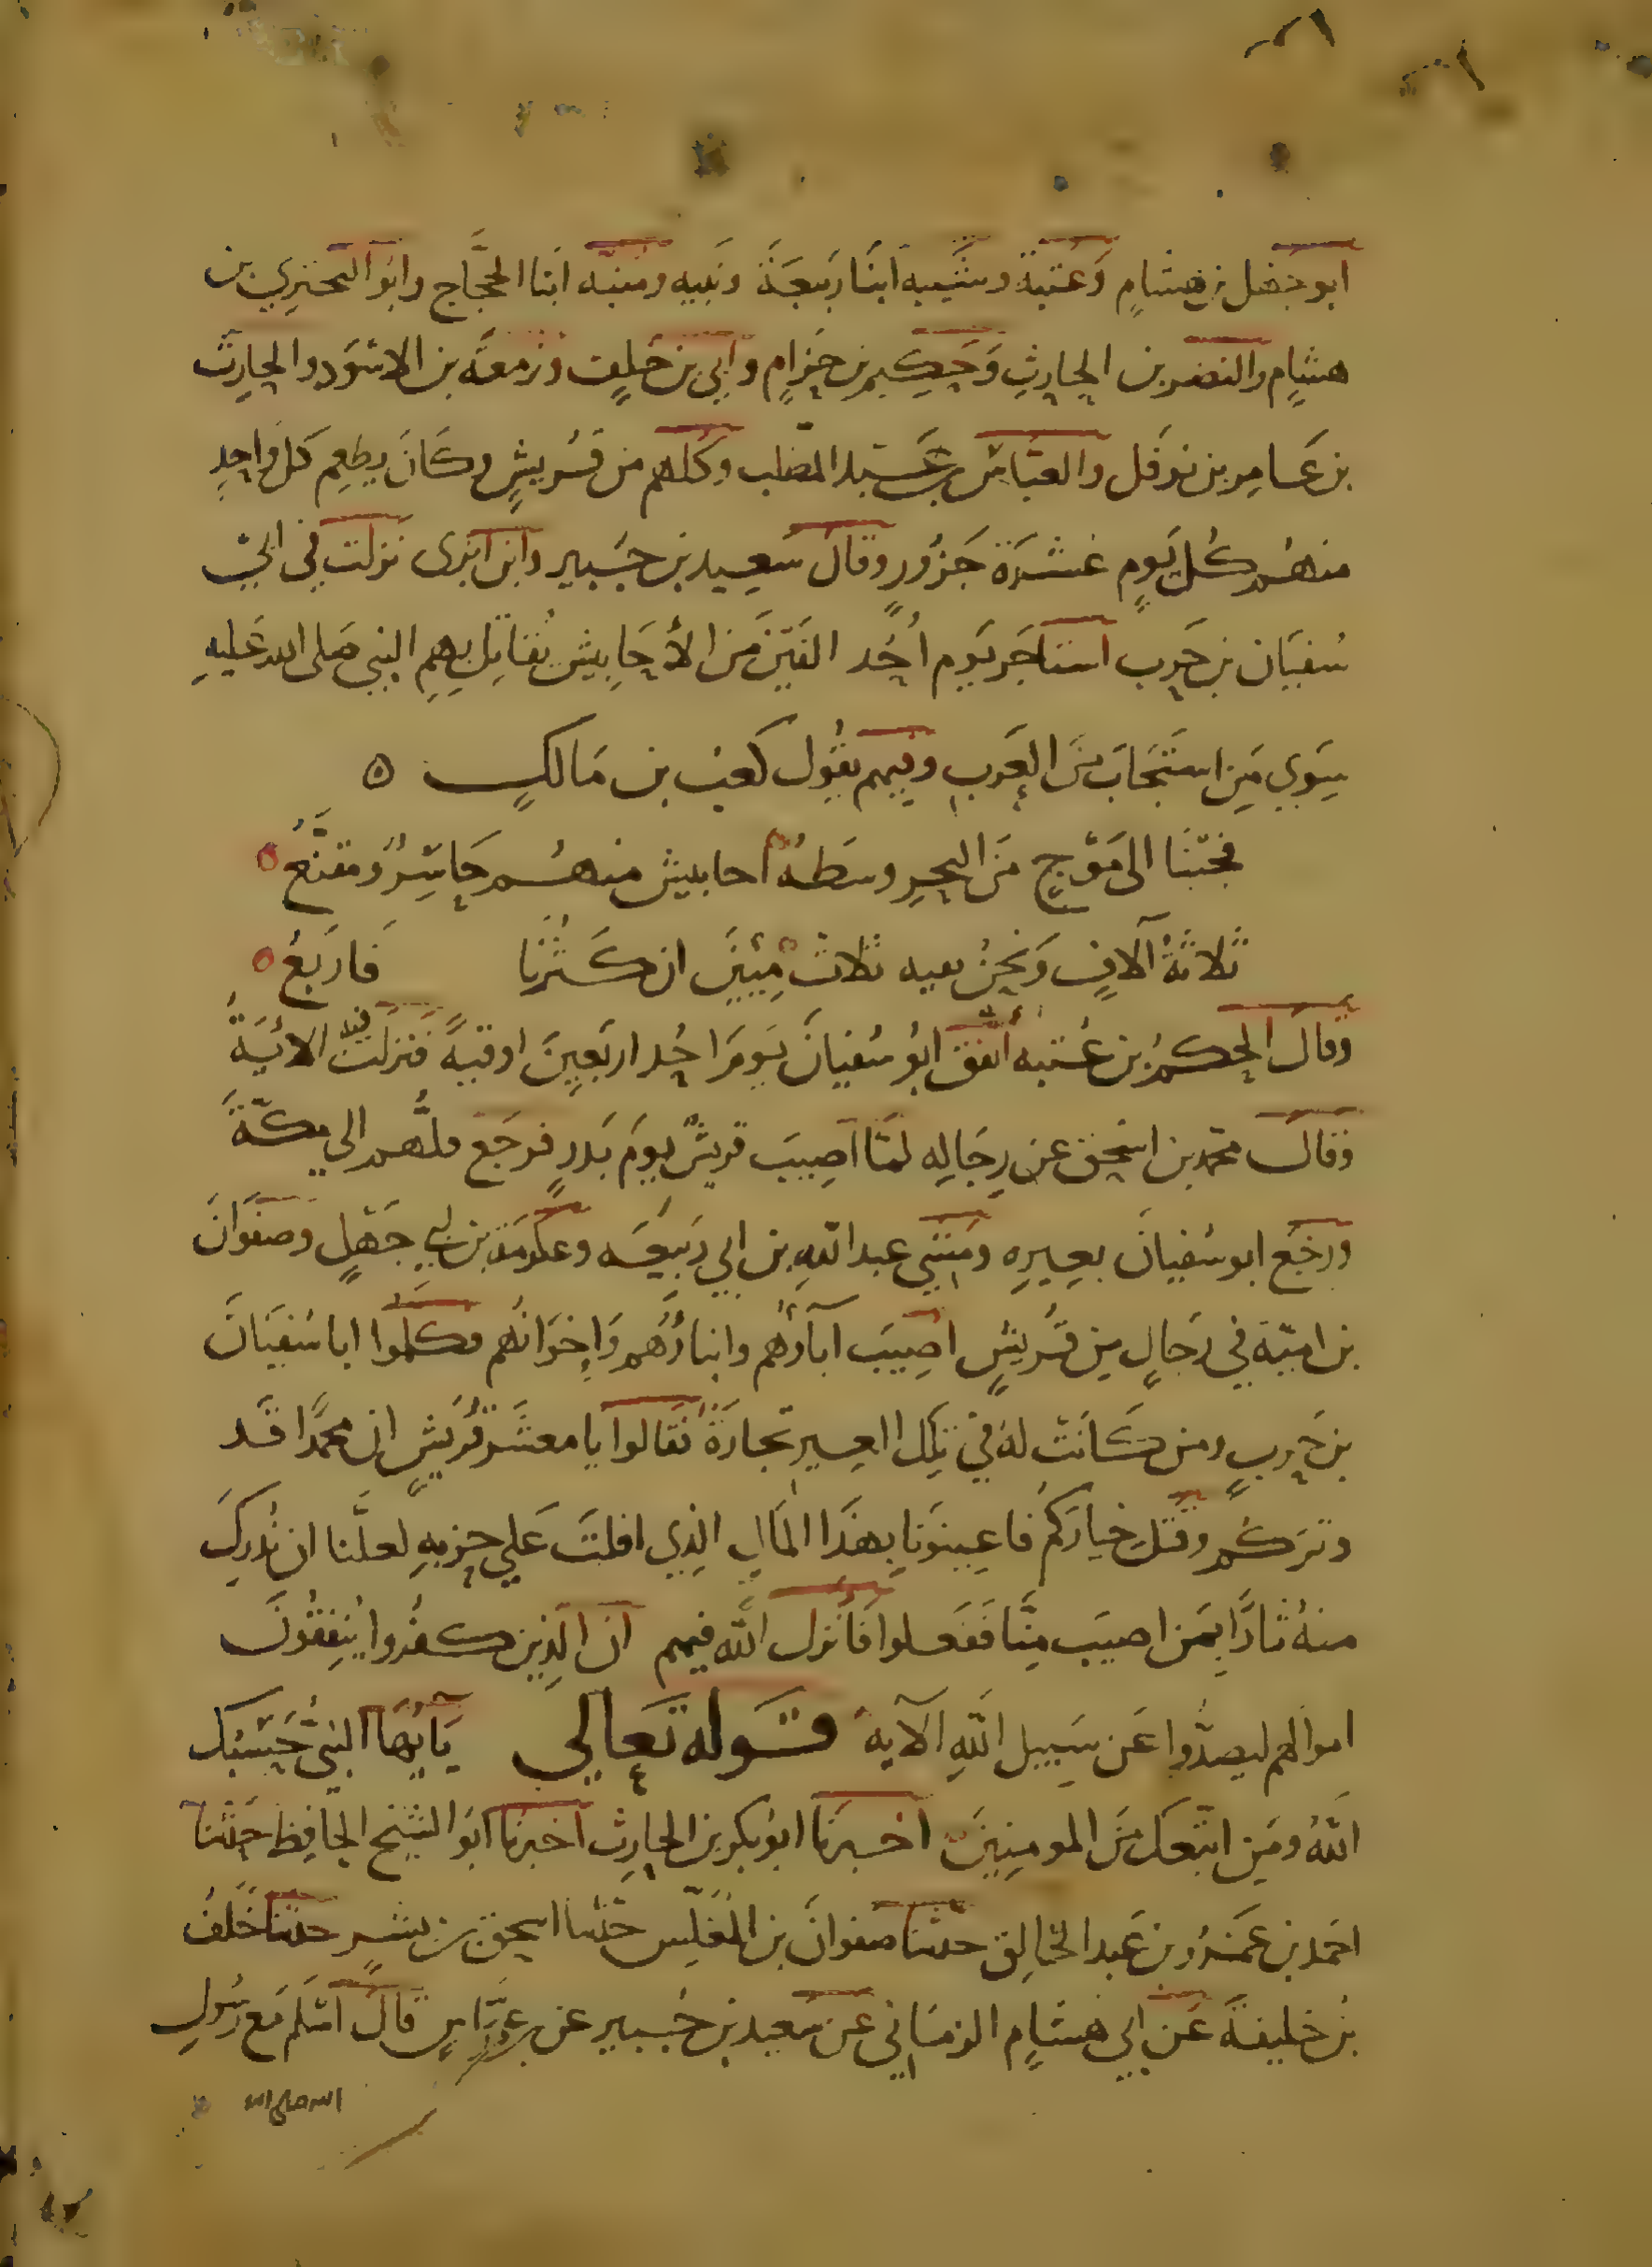 ابو جهل بن هشام وعتبة وشيبه ابنا ربيعة ونبيه ومنبه ابنا الحجاج وابو البختري بن
هشام والنضر بن الحارث وحكيم بن حزام وابي بن خلف وزمعه بن الاسود والحارث
بن عامر بن نوفل والعباس بن عبد المطلب وكلهم من قريش وكان يطعم كل واحد
منهم كل يوم عشرة جزور وقال سعيد بن جبير وابن ابزى نزلت في ابي
سفيان بن حرب استاجر يوم أحد الفين من الأحابيش يقاتل بهم النبي صلى الله عليه
سوي من استجاب من العرب وفيهم يقول كعب بن مالك ه
فجئنا الى موج من البحر وسطه أحابيش منهم حاسر ومقنع
ثلاثة آلاف ونحن بعيه ثلاث مئين ان كثرنا فاربع
وقال الحكم بن عتبه أنفق ابو سفيان يوم احد اربعين اوقية فنزلت فيه الاية
وقال محمد بن اسحق عن رجاله لما اصيبت قريش يوم بدر فرجع فلهم الى مكة
ورجع ابو سفيان بعيره ومشى عبد الله بن ابي ربيعه وعكرمة بن ابي جهل وصفوان
بن امية في رجال من قريش اصيب آباؤهم وابناؤهم واخوانهم فكلموا ابا سفيان
بن حرب ومن كانت له في تلك العير تجارة فقالوا يا معشر قريش ان محمدا قد
وتركم وقتل خياركم فاعينونا بهذا المال الذي افلت على حربه لعلنا ان ندرك
منه ثارا بمن اصيب منا ففعلوا فأنزل الله فيهم ان الذين كفروا ينفقون
اموالهم ليصدوا عن سبيل الله الآيه قوله تعالي يا أيها النبي حسبك
الله ومن اتبعك من المومنين أخبرنا ابو بكر بن الحارث أخبرنا ابو الشيخ الحافظ حدثنا
احمد بن عمرو بن عبد الخالق حدثنا صفوان بن المغلس حدثنا اسحق بن بشر حدثنا خلف
بن خليفة عن ابي هشام الرماني عن سعيد بن جبير عن بن عباس قال اسلم مع رسول
الله صلى الله